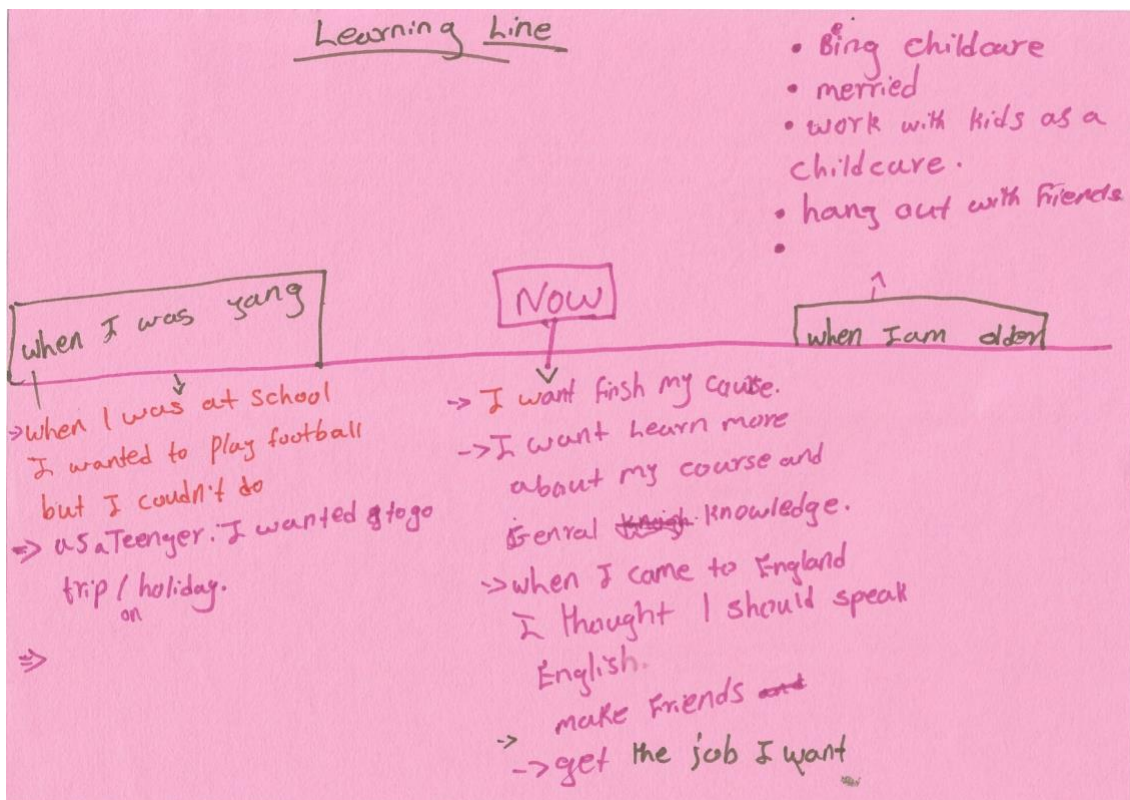 Learning Line
• Being childcare
• merried
• work with kids as a
childcare.
• hang out with Friends
•
when I was yang
Now
when I am older
→ when I was at school
I wanted to play football
but I coudn't do
⇒ as a Teenger. I wanted to go
trip / holiday.
on
⇒
→ I want finsh my
→ I want Learn more
about my course and
Genral knowledge.
→ when I came to England
I thought I should speak
English.
make Friends
→
→ get the job I want